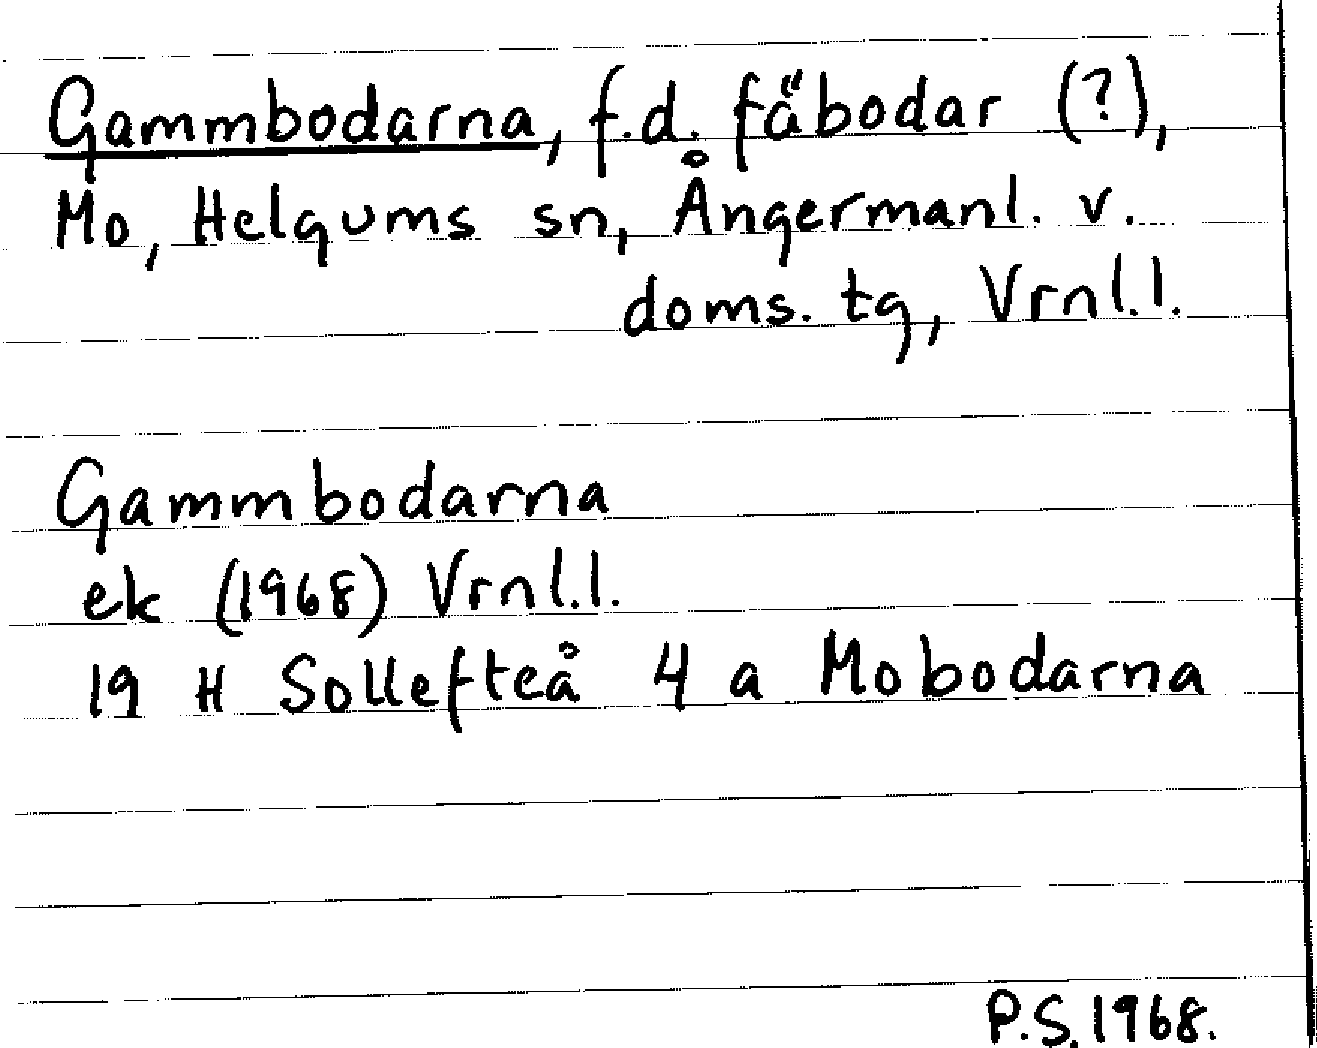 Gammbodarna, f.d. fäbodar (?),
Mo, Helgums sn, Ångermanl. v.
doms. tg, Vrnl.l.
Gammbodarna
ek (1968) Vrnl.l.
19 H Sollefteå 4 a Mobodarna
P.S. 1968.